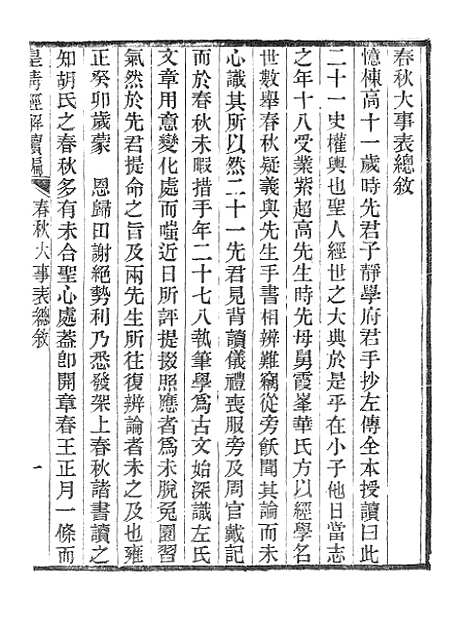 春秋大事表總敘
憶棟高十一歲時先君子靜學府君手抄左傳全本授讀曰此
二十一史權輿也聖人經世之大典於是乎在小子他日當志
之年十八受業紫超高先生時先母舅霞峯華氏方以經學名
世數舉春秋疑義與先生手書相辨難竊從旁飫聞其論而未
心識其所以然二十一先君見背讀儀禮喪服旁及周官戴記
而於春秋未暇措手年二十七八執筆學爲古文始深識左氏
文章用意變化處而嗤近日所評提掇照應者爲未脫兔園習
氣然於先君提命之旨及兩先生所往復辨論者未之及也雍
正癸卯歲蒙　恩歸田謝絕勢利乃悉發架上春秋諸書讀之
知胡氏之春秋多有未合聖心處蓋卽開章春王正月一條而
皇清經解續編　春秋大事表總敘　一